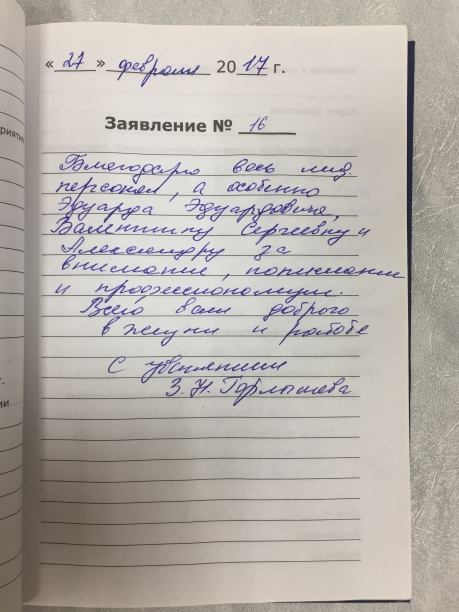 « 27 » февраля 2017 г.
Заявление № 16
Благодарю весь мед.
персонал, а особенно
Эдуарда Эдуардовича,
Валентину Сергеевну и
Александру за
внимание, понимание
и профессионализм.
Всего вам доброго
в жизни и работе
С уважением
З. Н.